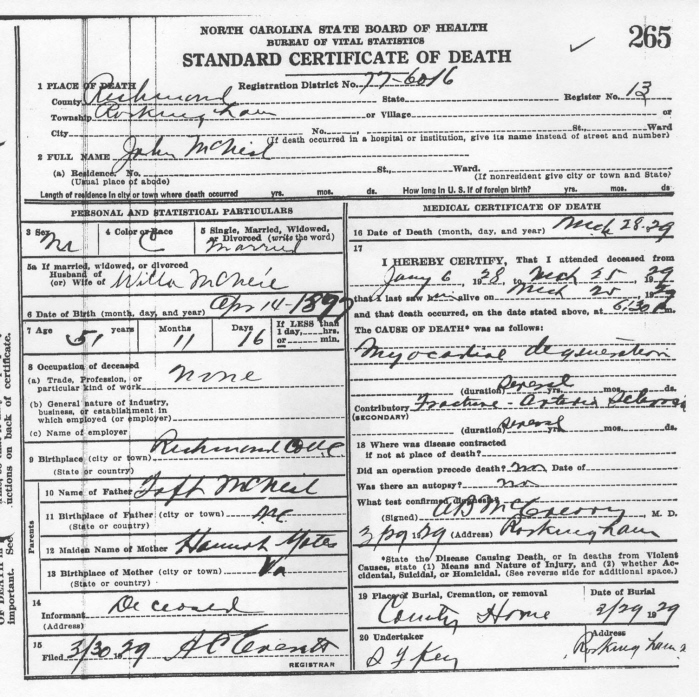 NORTH CAROLINA STATE BOARD OF HEALTH
BUREAU OF VITAL STATISTICS
STANDARD CERTIFICATE OF DEATH
265
1 PLACE OF DEATH
Registration District No. 77-6016
County Richmond State Register No. 13
Township Rockingham or Village or
City No. St., Ward
(If death occurred in a hospital or institution, give its name instead of street and number)
2 FULL NAME John McNeil
(a) Residence. No. St., Ward.
(Usual place of abode) (If nonresident give city or town and State)
Length of residence in city or town where death occurred yrs. mos. ds. How long in U. S. if of foreign birth? yrs. mos. ds.
PERSONAL AND STATISTICAL PARTICULARS
3 Sex M 4 Color or Race C 5 Single, Married, Widowed, or Divorced (write the word) Married
5a If married, widowed, or divorced
Husband of
(or) Wife of Willa McNeil
6 Date of Birth (month, day, and year) Apr 14-
7 Age 51 years Months 11 Days 16 If LESS than 1 day, hrs. or min.
8 Occupation of deceased
(a) Trade, Profession, or particular kind of work none
(b) General nature of Industry, business, or establishment in which employed (or employer)
(c) Name of employer
9 Birthplace (city or town) Richmond Co
(State or country)
Parents
10 Name of Father Taft McNeil
11 Birthplace of Father (city or town)
(State or country)
12 Maiden Name of Mother Hannah
13 Birthplace of Mother (city or town) Va
(State or country)
14
Informant Deceased
(Address)
15
Filed 3/30 1929 A C Everett
REGISTRAR
MEDICAL CERTIFICATE OF DEATH
16 Date of Death (month, day, and year) Mch 28-29
17
I HEREBY CERTIFY, That I attended deceased from
Jany 6, 1928 to Mch 25, 1929
that I last saw him alive on Mch 25 1929
and that death occurred, on the date stated above, at 6:30 m.
The CAUSE OF DEATH* was as follows:
Myocardial degeneration
(duration) Several yrs. mos. ds.
Contributory Fracture - Arterio Sclerosis
(SECONDARY)
(duration) Several yrs. mos. ds.
18 Where was disease contracted
if not at place of death?
Did an operation precede death? no Date of
Was there an autopsy? no
What test confirmed diagnosis?
(Signed) , M. D.
3/29 1929 (Address) Rockingham
*State the Disease Causing Death, or in deaths from Violent
Causes, state (1) Means and Nature of Injury, and (2) whether Ac-
cidental, Suicidal, or Homicidal. (See reverse side for additional space.)
19 Place of Burial, Cremation, or removal Date of Burial
County Home 3/29 1929
20 Undertaker Address
Key Rockingham
important. See
uctions on back of certificate.